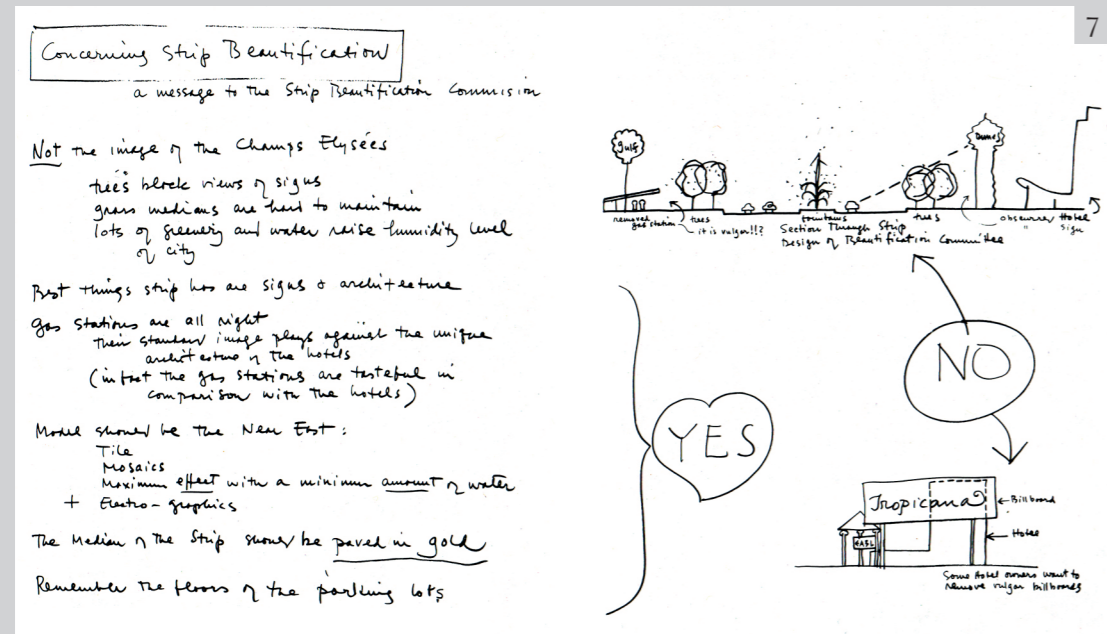 7
Concerning Strip Beautification
a message to the Strip Beautification Commision
Not the image of the Champs Elysées
trees block views of signs
grass medians are hard to maintain
lots of greenery and water raise humidity level
of city
Best things strip has are signs & architecture
gas stations are all right
their standard image plays against the unique
architecture of the hotels
(in fact the gas stations are tasteful in
comparison with the hotels)
Model should be the Near East:
Tile
Mosaics
Maximum effect with a minimum amount of water
+ Electro-graphics
The Median of the Strip should be paved in gold
Remember the floors of the parking lots
YES
Gulf
Dunes
removed
gas station
it is vulgar!!?
trees
fountains
trees
obscures Hotel
" sign
Section Through Strip
Design of Beautification Committee
NO
Tropicana
Billboard
Hotel
Some Hotel owners want to
remove vulgar billboards